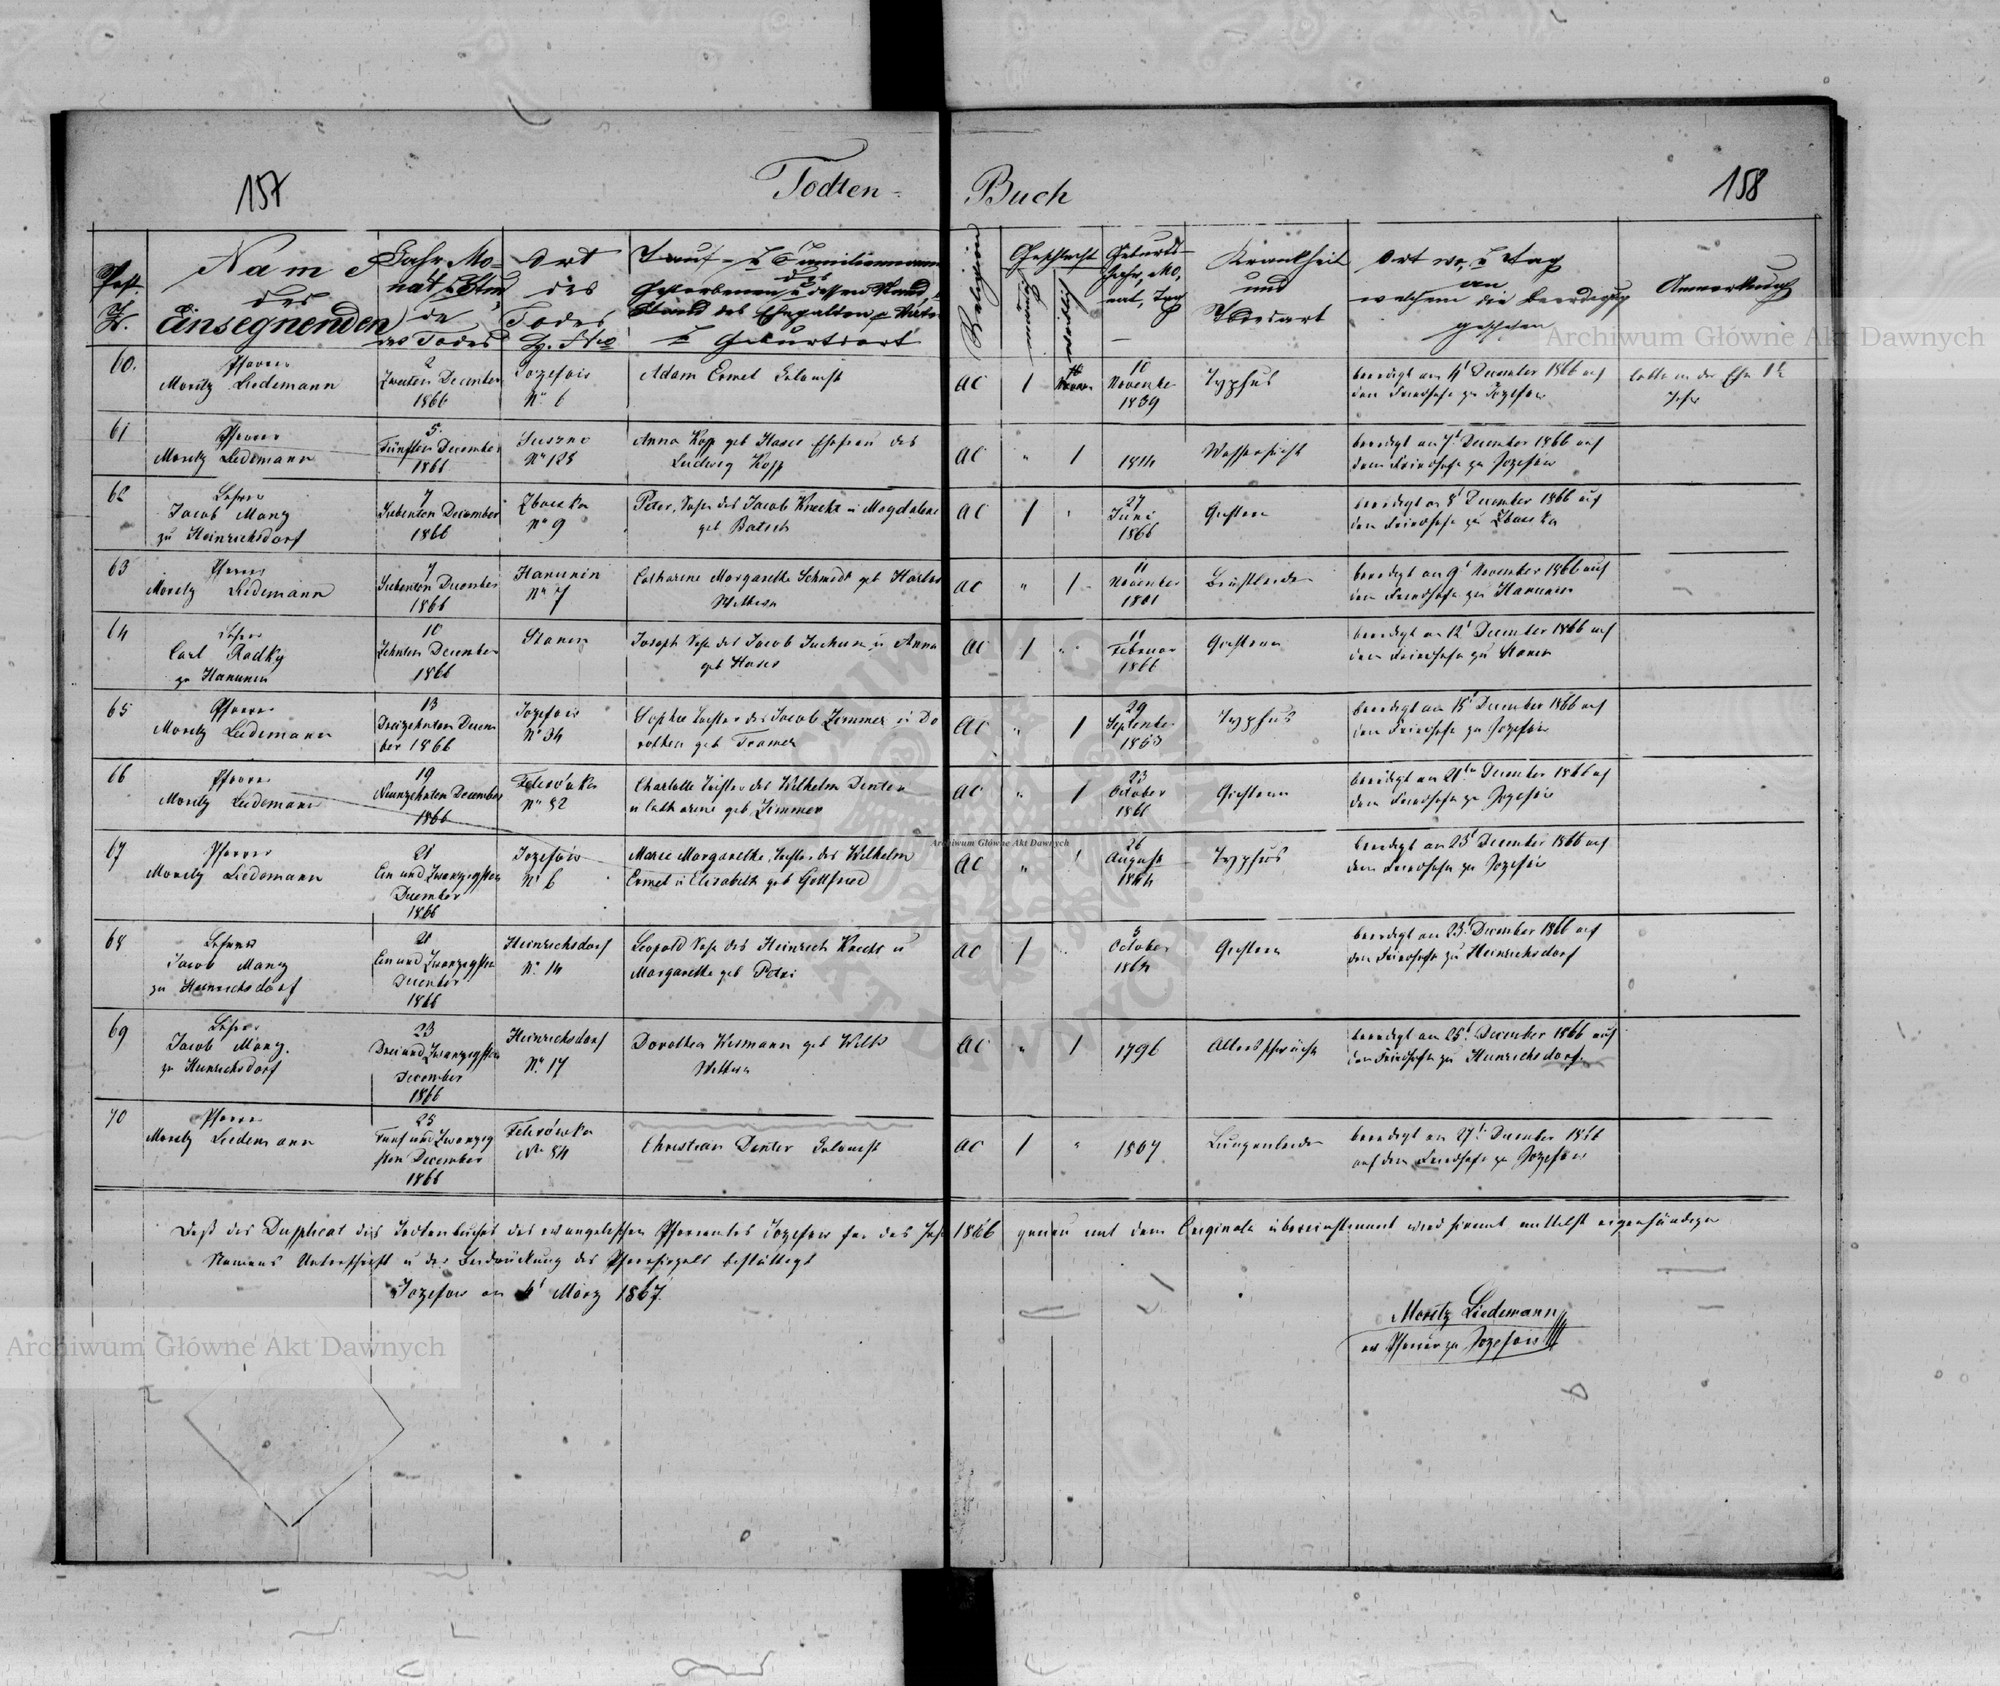 157
Todten-
Buch
158
Post. Z.
Name
des
Einsegnenden
Jahr, Mo-
nat u Stun
de
des Todes
Ort
des
Todes
Tauf- u Familienname
des
Stand des Ehegatten
u Geburtsort
Religion
Geschlecht
Geburts-
Jahr, Mo,
nat, Tag
Krankheit
und
Todesart
Ort wo, u Tag
an
welchem die Beerdigung
geschehen
Anmerkung
60.
Pfarrer
Moritz Liedemann
2
Zweiten December
1866
Jozefow
No 6
Adam Ermel Colonist
AC
1
10
November
1839
Typhus
beerdigt am 4t December 1866 auf
dem Friedhofe zu Jozefow
lebte in der Ehe
Jahr
61
Pfarrer
Moritz Liedemann
5
Fünften December
1866
Suszno
No 128
Anna Kopf geb Haser Ehefrau des
Ludwig Kopf
AC
"
1
1814
Wassersucht
beerdigt am 7t December 1866 auf
dem Friedhofe zu Jozefow
62
Lehrer
Jacob Manz
zu Heinrichsdorf
7
Siebenten December
1866
No 9
Peter, Sohn des Jacob Knecht u Magdalena
geb Batsch
AC
1
27
Juni
1866
beerdigt am 8t December 1866 auf
dem Friedhofe zu
63
Pfarrer
Moritz Liedemann
7
Siebenten December
1866
Hanunin
No 7
Catharine Margarethe Schmidt geb
Wittwe
AC
"
1
11
November
1801
Brustleiden
beerdigt am 9t November 1866 auf
dem Friedhofe zu Hanunin
64
Lehrer
Carl Radky
zu Hanunin
10
Zehnten December
1866
Stanin
Joseph Sohn des Jacob u Anna
geb Haser
AC
1
11
Februar
1866
beerdigt am 12t December 1866 auf
dem Friedhofe zu Stanin
65
Pfarrer
Moritz Liedemann
13
Dreizehnten Decem
ber 1866
Jozefow
No 34
Sophie Tochter des Jacob Zimmer u Do
rothea geb Kramer
AC
"
1
29
September
1863
Typhus
beerdigt am 15t December 1866 auf
dem Friedhofe zu Jozefow
66
Pfarrer
Moritz Liedemann
19
Neunzehnten December
1866
No 82
Charlotte Tochter des Wilhelm Denter
u Catharine geb Zimmer
AC
"
1
23
October
1866
beerdigt am 21ten December 1866 auf
dem Friedhofe zu Jozefow
67
Pfarrer
Moritz Liedemann
21
Ein und Zwanzigsten
December
1866
Jozefow
No 6
Marie Margarethe, Tochter des Wilhelm
Ermel u Elisabeth geb Gottfried
AC
"
1
26
August
1864
Typhus
beerdigt am 23t December 1866 auf
dem Friedhofe zu Jozefow
68
Lehrer
Jacob Manz
zu Heinrichsdorf
21
Ein und Zwanzigsten
December
1866
Heinrichsdorf
No 14
Leopold Sohn des Heinrich Knecht u
Margarethe geb Petri
AC
1
October
1864
beerdigt am 23t December 1866 auf
dem Friedhofe zu Heinrichsdorf
69
Lehrer
Jacob Manz.
zu Heinrichsdorf
23
Drei und Zwanzigsten
December
1866
Heinrichsdorf
No 17
Dorothea geb
Wittwe
AC
"
1
1796
Altersschwäche
beerdigt am 25t December 1866 auf
dem Friedhofe zu Heinrichsdorf
70
Pfarrer
Moritz Liedemann
25
Fünf und Zwanzig
sten December
1866
No 84
Christian Denter Colonist
AC
1
"
1807
Lungenleiden
beerdigt am 27t December 1866
auf dem Friedhofe zu Jozefow
Daß das Dupplicat des Todtenbuches des evangelischen Pfarramtes Jozefow für das Jahr 1866 genau mit dem Originale übereinstimmt wird hiermit mittelst eigenhändiger
Namens Unterschrift u der Beidrückung des Pfarrsiegels bestättigt
Jozefow am 4t März 1867.
Moritz Liedemann
ev Pfarrer zu Jozefow
Archiwum Główne Akt Dawnych
Archiwum Główne Akt Dawnych
Archiwum Główne Akt Dawnych